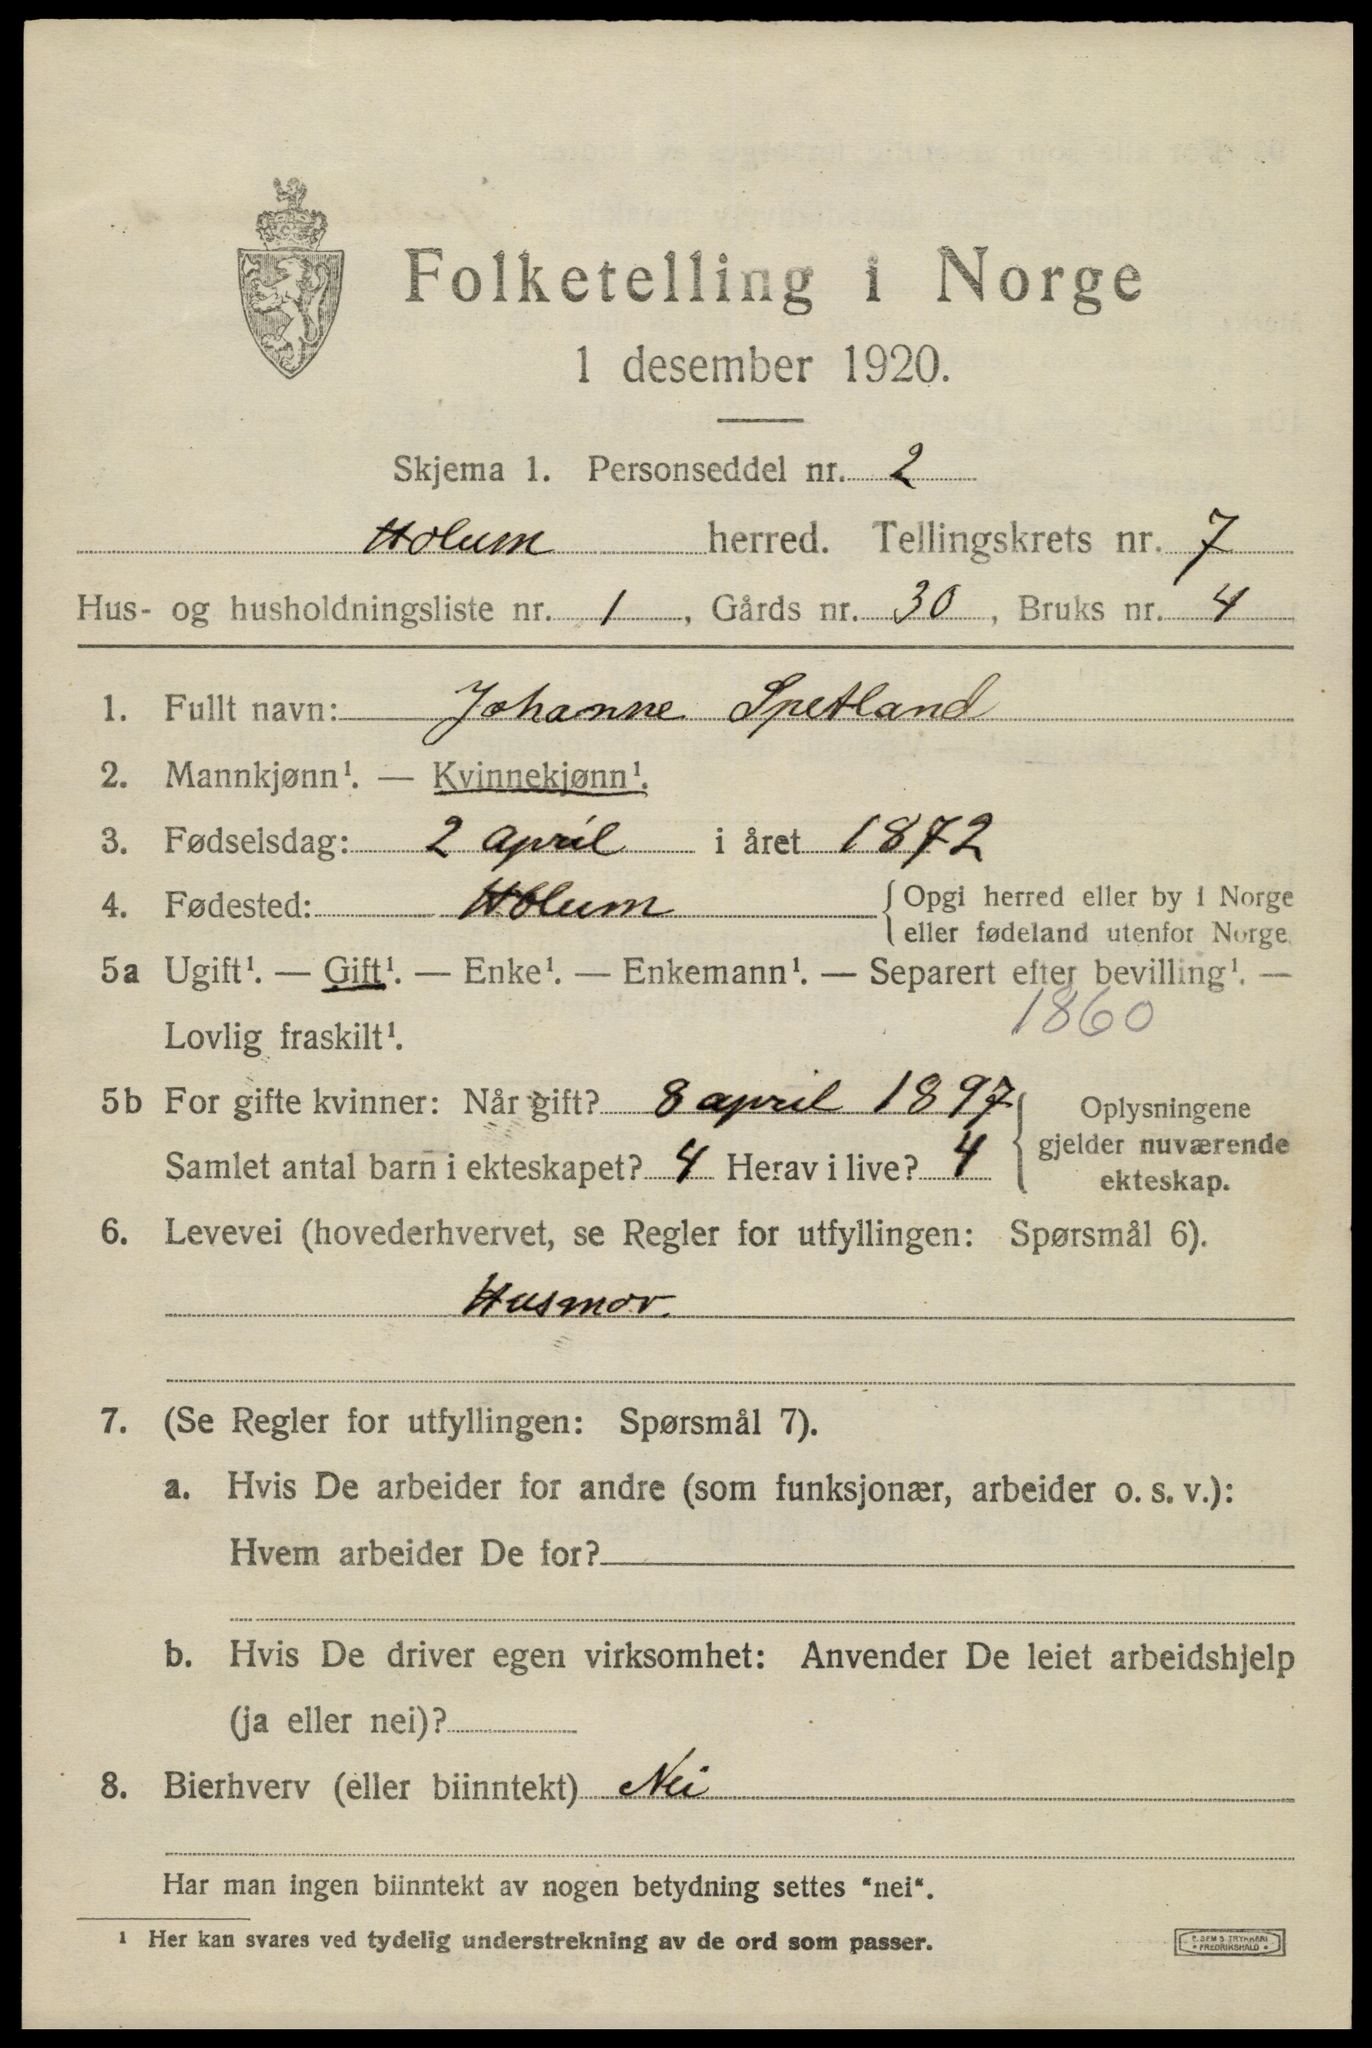 Folketelling i Norge
1 desember 1920.
Skjema 1. Personseddel nr. 2
Holum herred. Tellingskrets nr. 7
Hus- og husholdningsliste nr. 1, Gårds nr. 30, Bruks nr. 4
1. Fullt navn: Johanne Spetland
2. Mannkjønn¹. — Kvinnekjønn¹.
3. Fødselsdag: 2 april i året 1872
4. Fødested: Holum { Opgi herred eller by i Norge
eller fødeland utenfor Norge.
5a Ugift¹. — Gift¹. — Enke¹. — Enkemann¹. — Separert efter bevilling¹. —
1860
Lovlig fraskilt¹.
5b For gifte kvinner: Når gift? 8 april 1897
Samlet antal barn i ekteskapet? 4 Herav i live? 4
{ Oplysningene
gjelder nuværende
ekteskap.
6. Levevei (hovederhvervet, se Regler for utfyllingen: Spørsmål 6).
Husmor.
7. (Se Regler for utfyllingen: Spørsmål 7).
a. Hvis De arbeider for andre (som funksjonær, arbeider o. s. v.):
Hvem arbeider De for?
b. Hvis De driver egen virksomhet: Anvender De leiet arbeidshjelp
(ja eller nei)?
8. Bierhverv (eller biinntekt) Nei
Har man ingen biinntekt av nogen betydning settes "nei".
¹ Her kan svares ved tydelig understrekning av de ord som passer.
E. SEM S TRYKKERI
FREDRIKSHALD